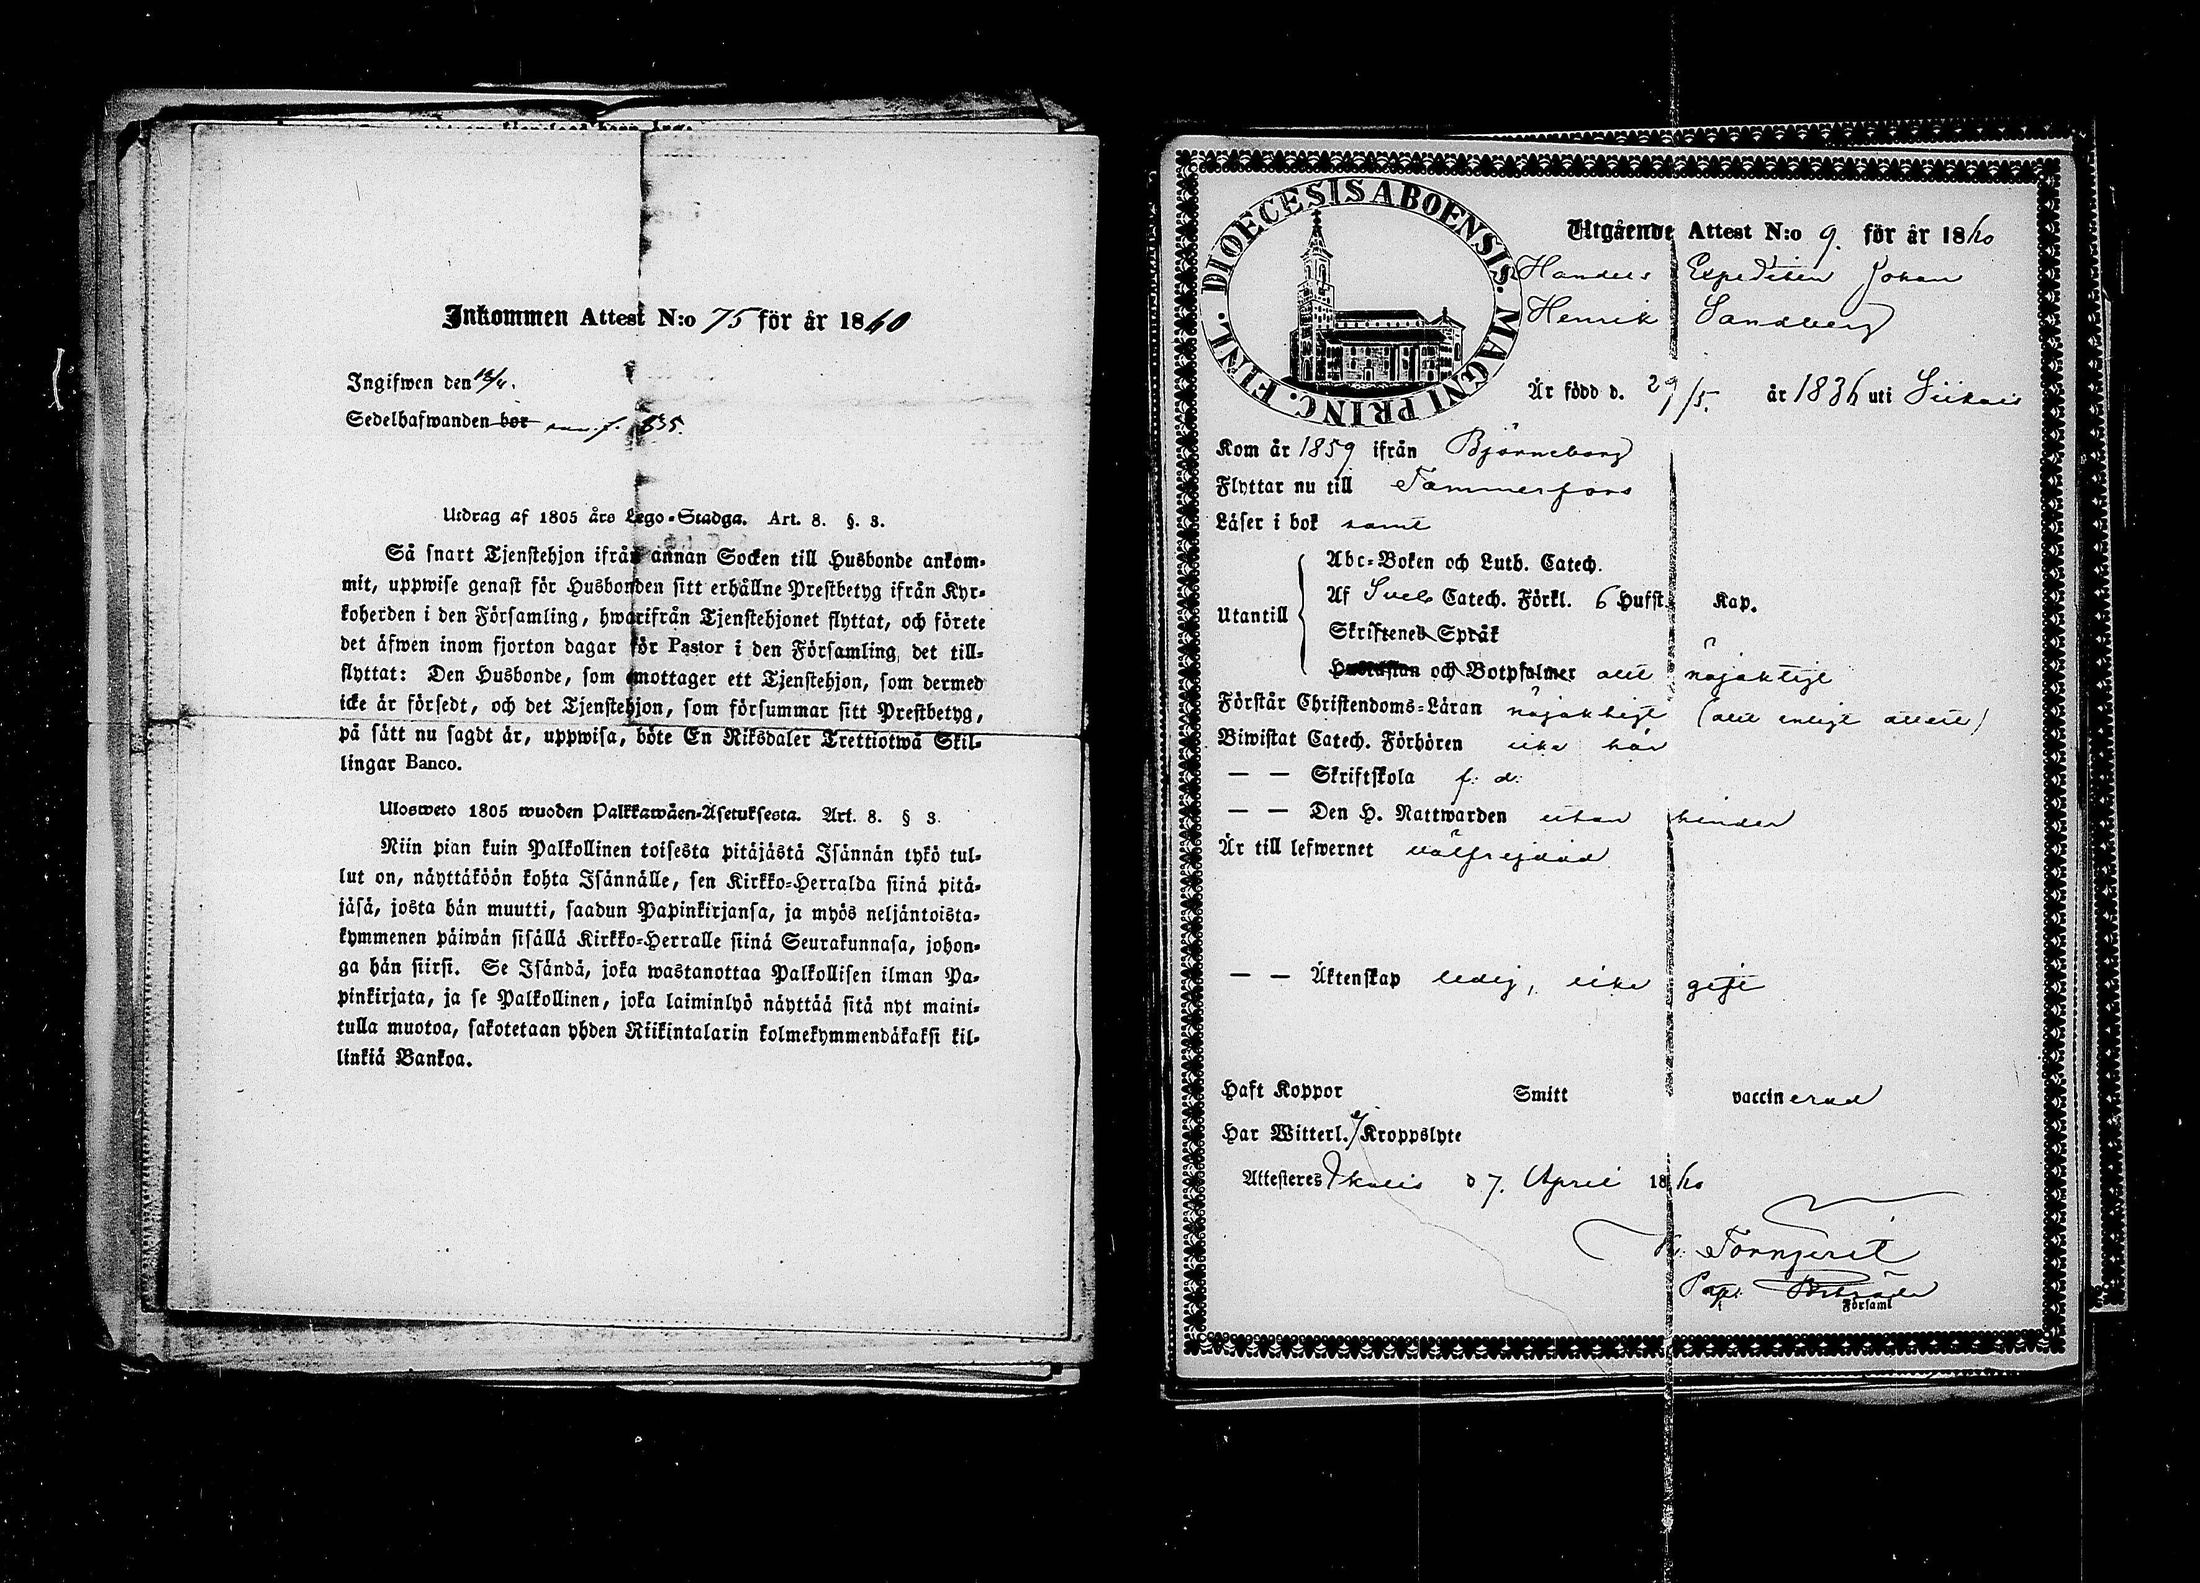 Inkommen Attest N:o 75 för år 1860
Ingifwen den 13/4.
Sedelhafwanden bör f. 835.
Utdrag af 1805 års Lego-Stadga. Art. 8. §. 3.
Så snart Tjenstehjon ifrån annan Socken till Husbonde ankom-
mit, uppwise genast för Husbonden sitt erhållne Prestbetyg ifrån Kyr-
koherden i den Församling, hwarifrån Tjenstehjonet flyttat, och förete
det äfwen inom fjorton dagar för Pastor i den Församling det till-
flyttat: Den Husbonde, som emottager ett Tjenstehjon, som dermed
icke är försedt, och det Tjenstehjon, som försummar sitt Prestbetyg,
på sätt nu sagdt är, uppwisa, böte En Riksdaler Trettiotwå Skil-
lingar Banco.
Ulosweto 1805 wuoden Palkkawäen-Asetuksesta. Art. 8. § 3.
Niin pian kuin Palkollinen toisesta pitäjästä Isännän tykö tul-
lut on, näyttäköön kohta Isännälle, sen Kirkko-Herralda siinä pitä-
jäsä, josta hän muutti, saadun Papinkirjansa, ja myös neljäntoista-
kymmenen päiwän sisällä Kirkko-Herralle siinä Seurakunnasa, johon-
ga hän siirsi. Se Isändä, joka wastanottaa Palkollisen ilman Pa-
pinkirjata, ja se Palkollinen, joka laiminlyö näyttää sitä nyt maini-
tulla muotoa, sakotetaan yhden Riikintalarin kolmekymmendäkaksi kil-
linkiä Bankoa.
DIOECESIS ABOENSIS. MAGNI PRINC. FINL.
Utgående Attest N:o 9. för år 1860
Handels Expediten Johan
Henrik Sandberg
Är född d. 29/5. år 1836 uti Siikais
Kom år 1859 ifrån Björneborg
Flyttar nu till Tammerfors
Läser i bok samt
Utantill
Abc-Boken och Luth. Catech.
Af Sveb. Catech. Förkl. 6 Hufst. Kap.
Skriftenes Språk
Hustaflan och Botpsalmer allt nöjaktigt
Förstår Christendoms-Läran nöjaktigt (allt enligt attest)
Biwistat Catech. Förhören icke här
— — Skriftskola f. d.
— — Den H. Nattwarden utan hinder
Är till lefwernet välfrejdad
— — Äktenskap ledig, icke gift
Haft Koppor Smitt vaccinerad
Har Witterl. ej Kroppslyte
Attesteres Ikalis d 7. April 1860
Tornqvist
Församl